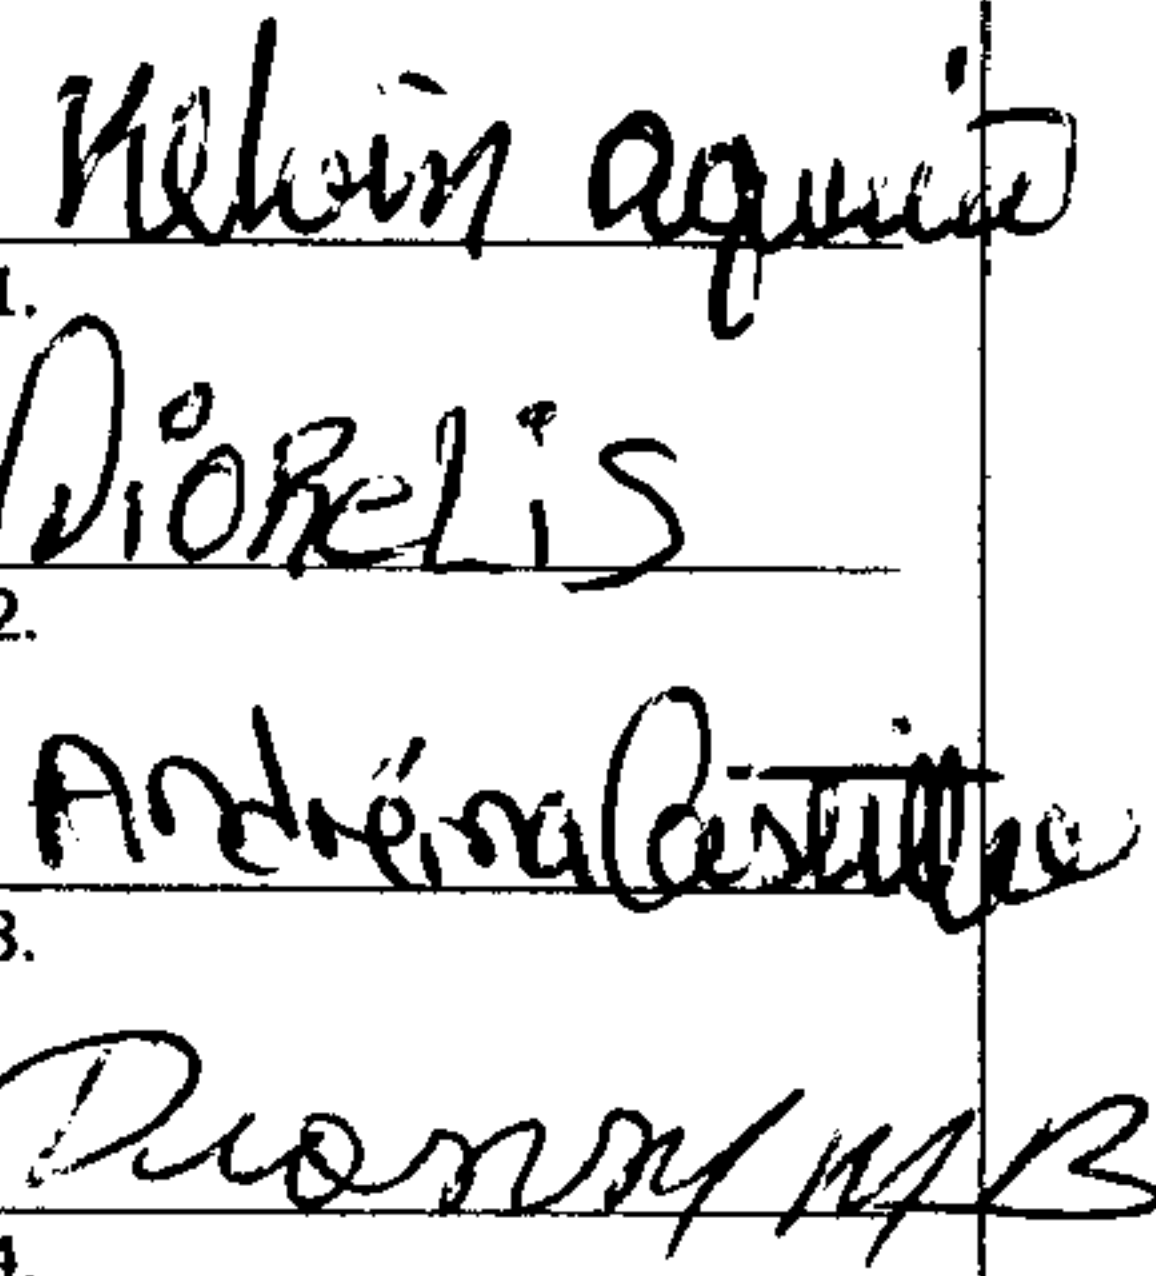 Kelvin aquino
1.
Diorelis
2.
Andreina Castillo
3.
Dionny MB
4.